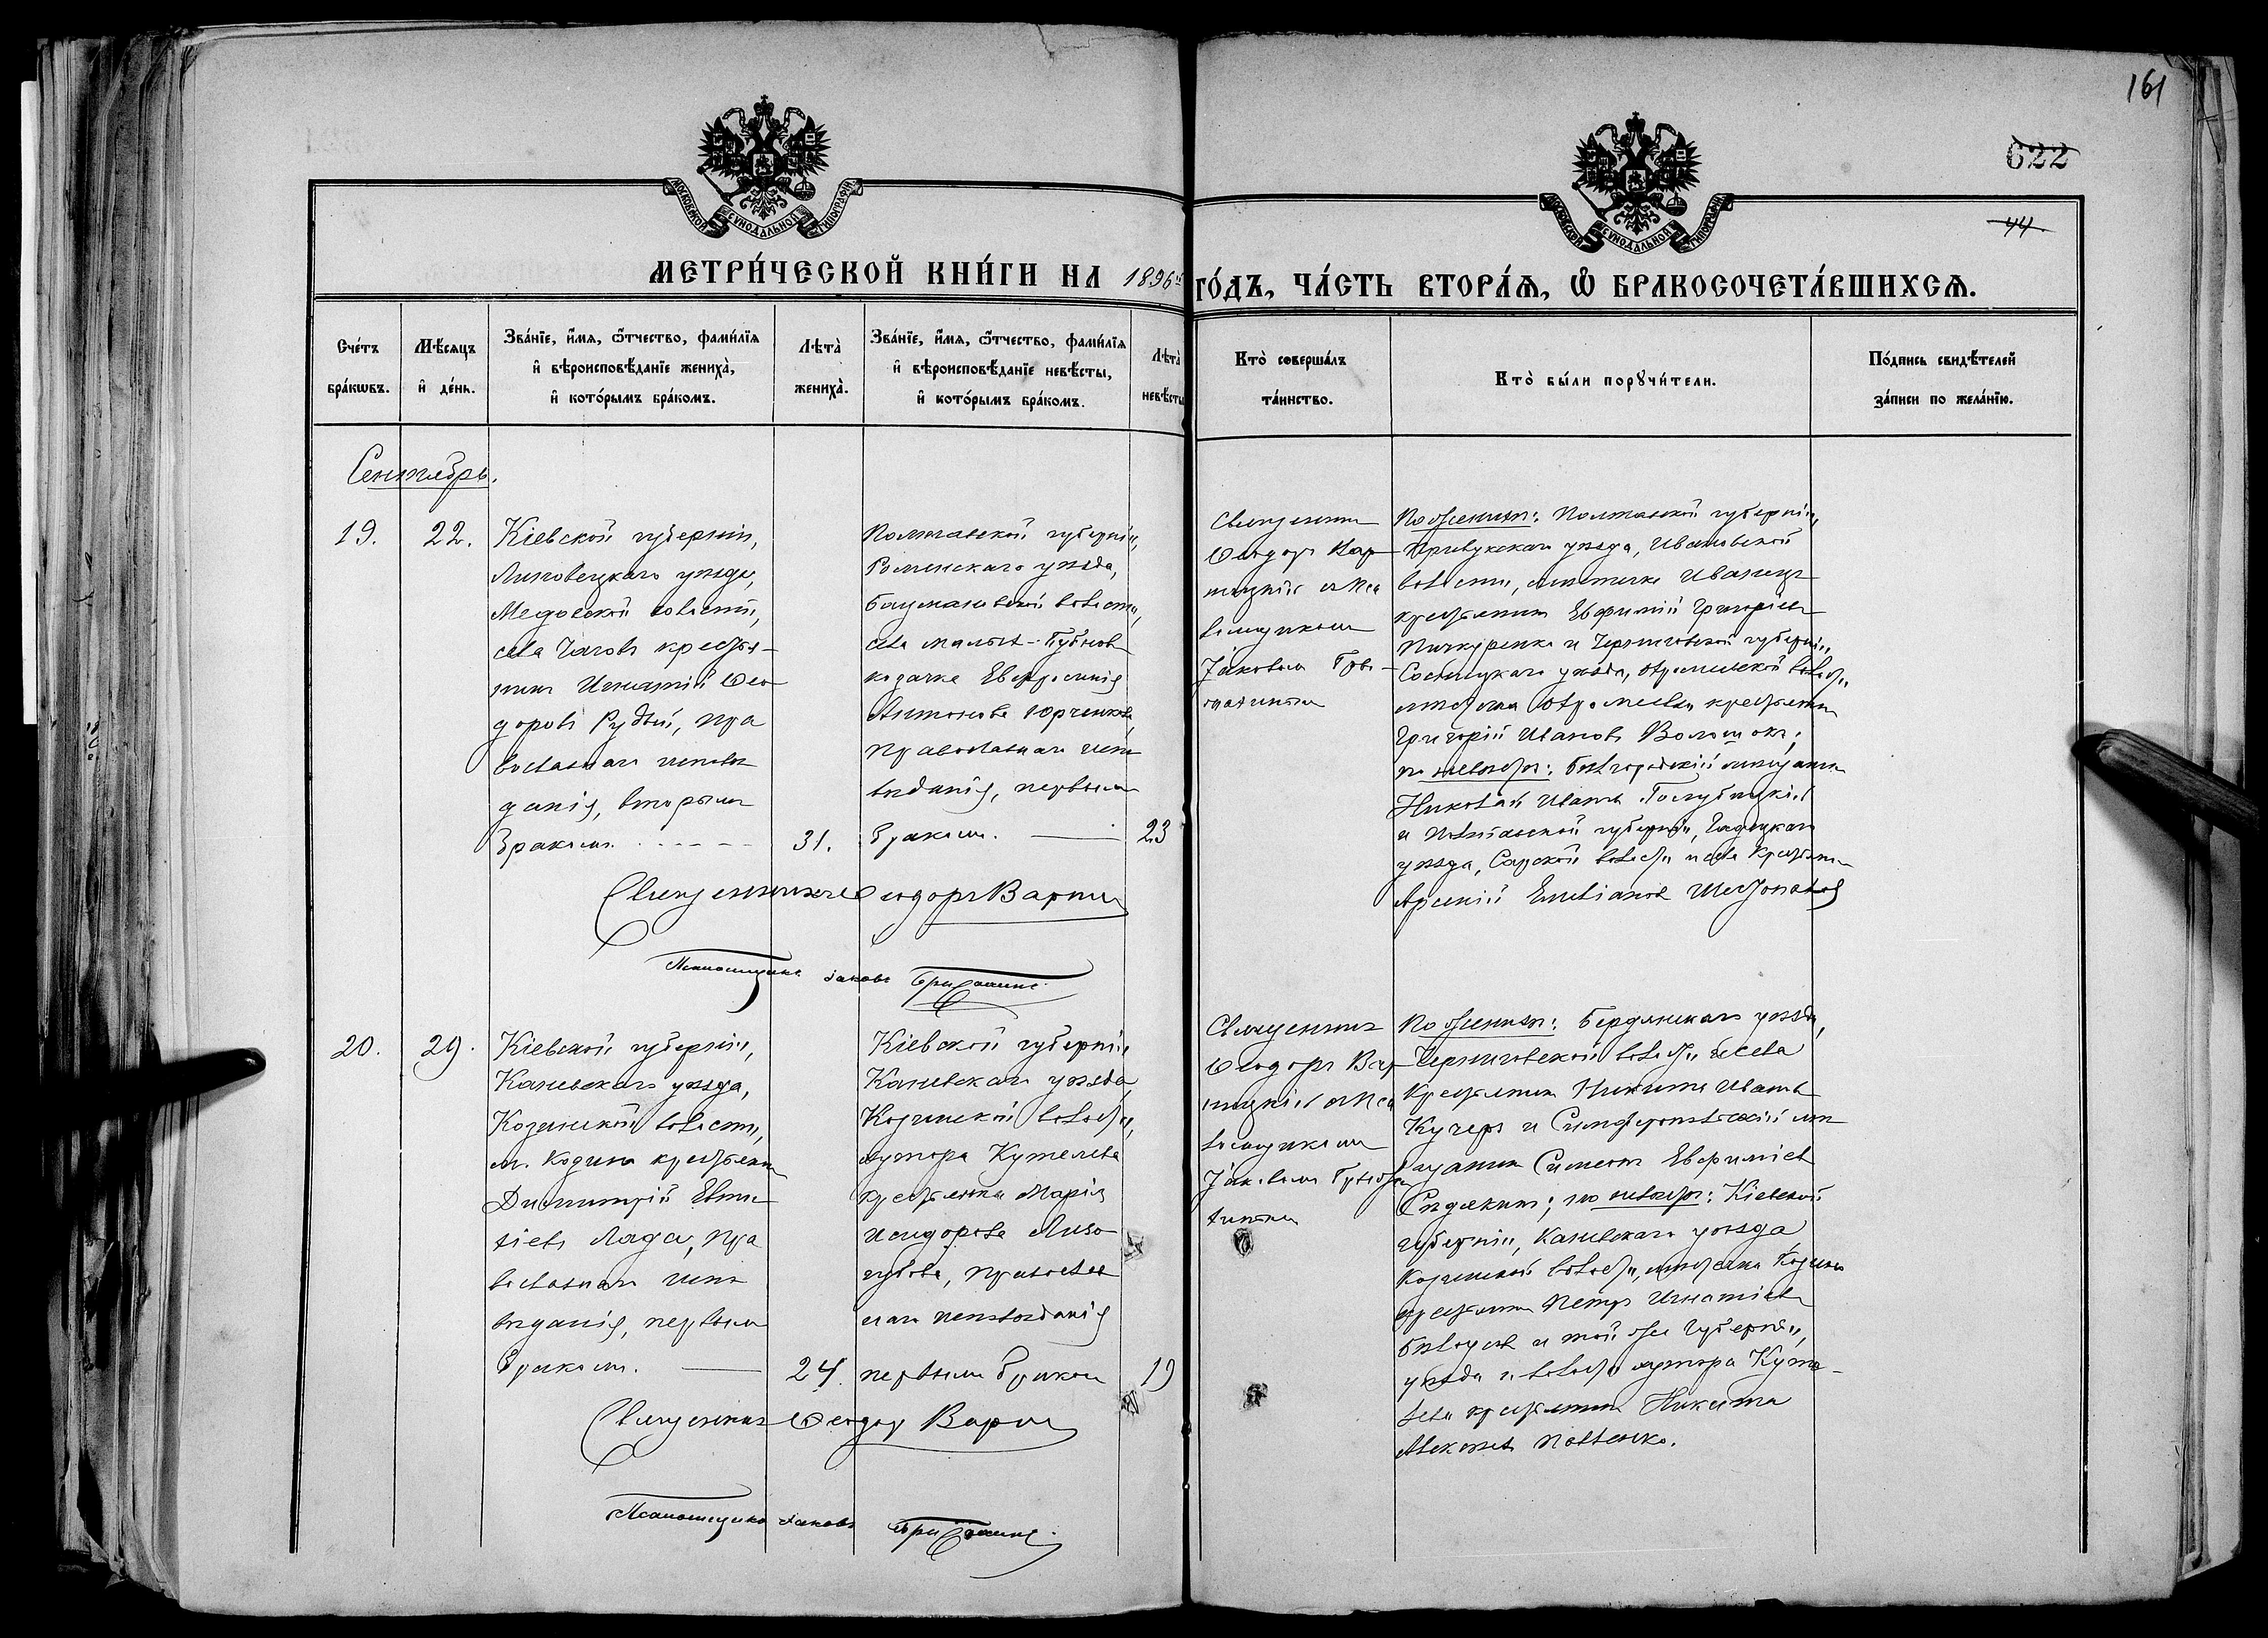 161
622
44.
МОСКОВСКОЙ СѴНОДАЛЬНОЙ ТИПОГРАФІИ
МОСКОВСКОЙ СѴНОДАЛЬНОЙ ТИПОГРАФІИ
МЕТРИ́ЧЕСКОЙ КНИ́ГИ НА 1896й ГО́ДЪ, ЧА́СТЬ ВТОРА́Я, Ѡ БРАКОСОЧЕТА́ВШИХСЯ.
Сче́тъ
бра́кѡвъ.
Мѣ́сяцъ
и҆ де́нь.
Зва́нїе, и҆́мя, ѻ҆́тчество, фами́лїя
и҆ вѣроисповѣ́данїе жениха̀,
и҆ кото́рымъ бра́комъ.
Лѣта̀
жениха̀.
Зва́нїе, и҆́мя, ѻ҆́тчество, фами́лїя
и҆ вѣроисповѣ́данїе невѣ́сты,
и҆ кото́рымъ бра́комъ.
Лѣта̀
невѣ́сты
Кто̀ соверша́лъ
та́инство.
Кто̀ бы́ли порꙋчи́тели.
По́дпись свидѣ́телей
за́писи по жела́нїю.
Сентябрь.
19.
22.
Кіевской губерніи,
Липовецкаго уѣзда,
Медовской волости,
села Чагова крестья-
нинъ Игнатій Ѳео
доровъ Рудый, пра
вославнаго исповѣ
данія, вторымъ
бракомъ.
31.
Полтавской губерніи,
Роменскаго уѣзда,
волости,
села Малыхъ-Бубновъ
козачка Евфросинія
Антонова Юрченкова,
православнаго испо
вѣданія, первымъ
бракомъ.
23
Священникъ
Ѳеодоръ Вар
ницкій съ пса
ломщикомъ
Іаковомъ
По женихѣ: Полтавской губерніи,
Прилукскаго уѣзда, Ивановской
волости, мѣстечка Иваницы
крестьянинъ Евфимій Григорьевъ
и Черниговской губерніи,
Сосницкаго уѣзда, волости
крестьянинъ
Григорій Ивановъ Волошокъ;
по невѣстѣ: Бѣлгородскій мѣщанинъ
Николай Ивановъ Голубицкій
и Полтавской губерніи, Гадяцкаго
уѣзда, Сарской волости и села крестьянинъ
Арсеній
Священникъ Ѳеодоръ Варниц
Псаломщикъ Іаковъ
20.
29.
Кіевской губерніи,
Каневскаго уѣзда,
Козинской волости,
м. Козина крестьянинъ
Димитрій Евти
хіевъ Ляда, пра
вославнаго испо
вѣданія, первымъ
бракомъ.
24.
Кіевской губерніи
Каневскаго уѣзда,
Козинской волости,
хутора Кутелева
крестьянка Марія
Исидорова Лизо
губова, православ
наго исповѣданія
первымъ бракомъ
19
Священникъ
Ѳеодоръ Вар
ницкій съ пса
ломщикомъ
Іаковомъ
По женихѣ: Бердянскаго уѣзда,
Черниговской волости и села
крестьянинъ Никита Ивановъ
Кучеръ и Симферопольскій мѣ
щанинъ Симеонъ Евфиміевъ
Сидякинъ; по невѣстѣ: Кіевской
губерніи, Каневскаго уѣзда
Козинской волости, мѣстечка Козина
крестьянинъ Петръ Игнатіевъ
Бѣлоусъ и той же губерніи,
уѣзда и волости хутора Куте-
лева крестьянинъ Никита
Алексѣевъ Павленко.
Священникъ Ѳеодоръ Варниц
Псаломщикъ Іаковъ